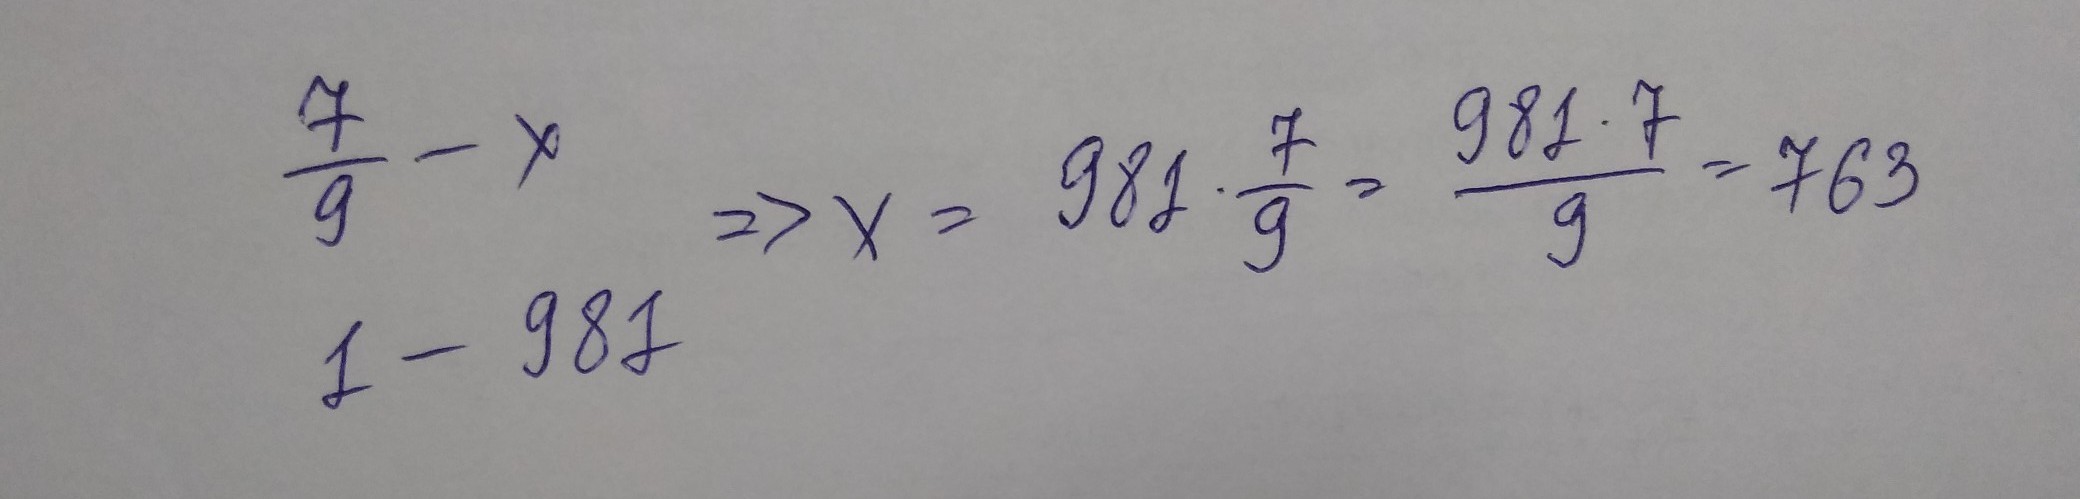 7/9 − x
1 − 981
=> x = 981 · 7/9 = 981 · 7/9 = 763